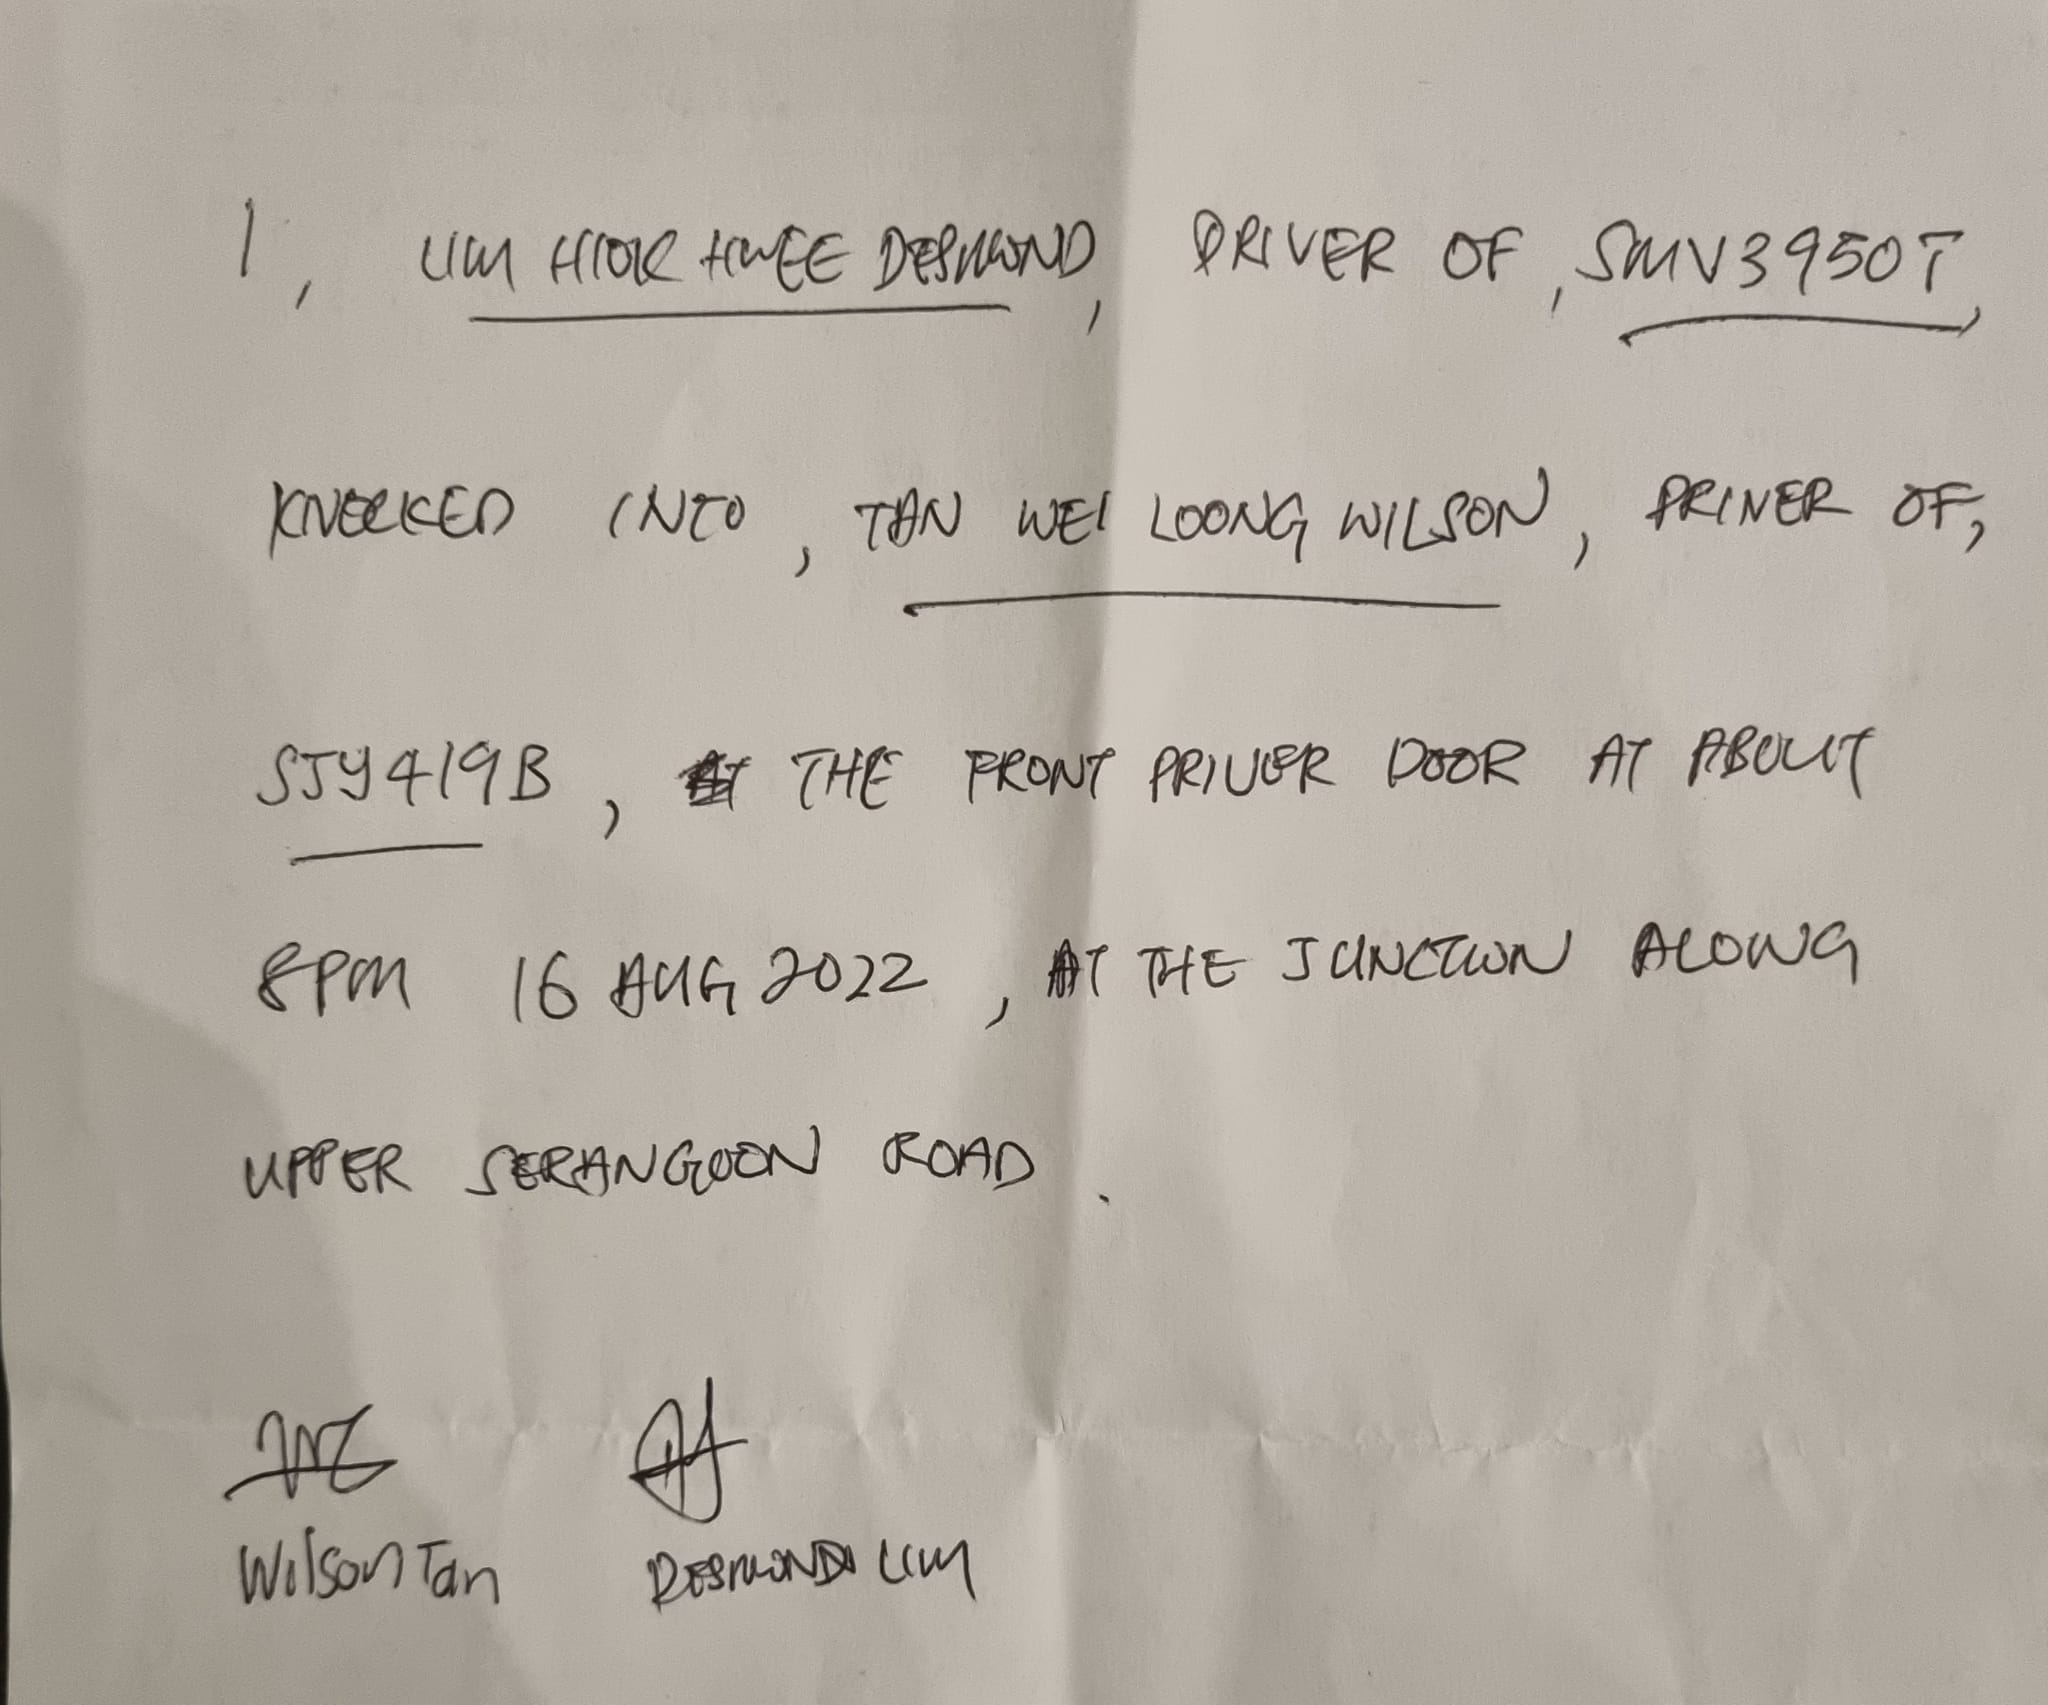 I, LIM HIOK HWEE DESMOND, DRIVER OF, SMV3950T,
KNOCKED INTO, TAN WEI LOONG WILSON, DRIVER OF,
SJY419B, AT THE FRONT DRIVER DOOR AT ABOUT
8PM 16 AUG 2022, AT THE JUNCTION ALONG
UPPER SERANGOON ROAD.
Wilson Tan DESMOND LIM